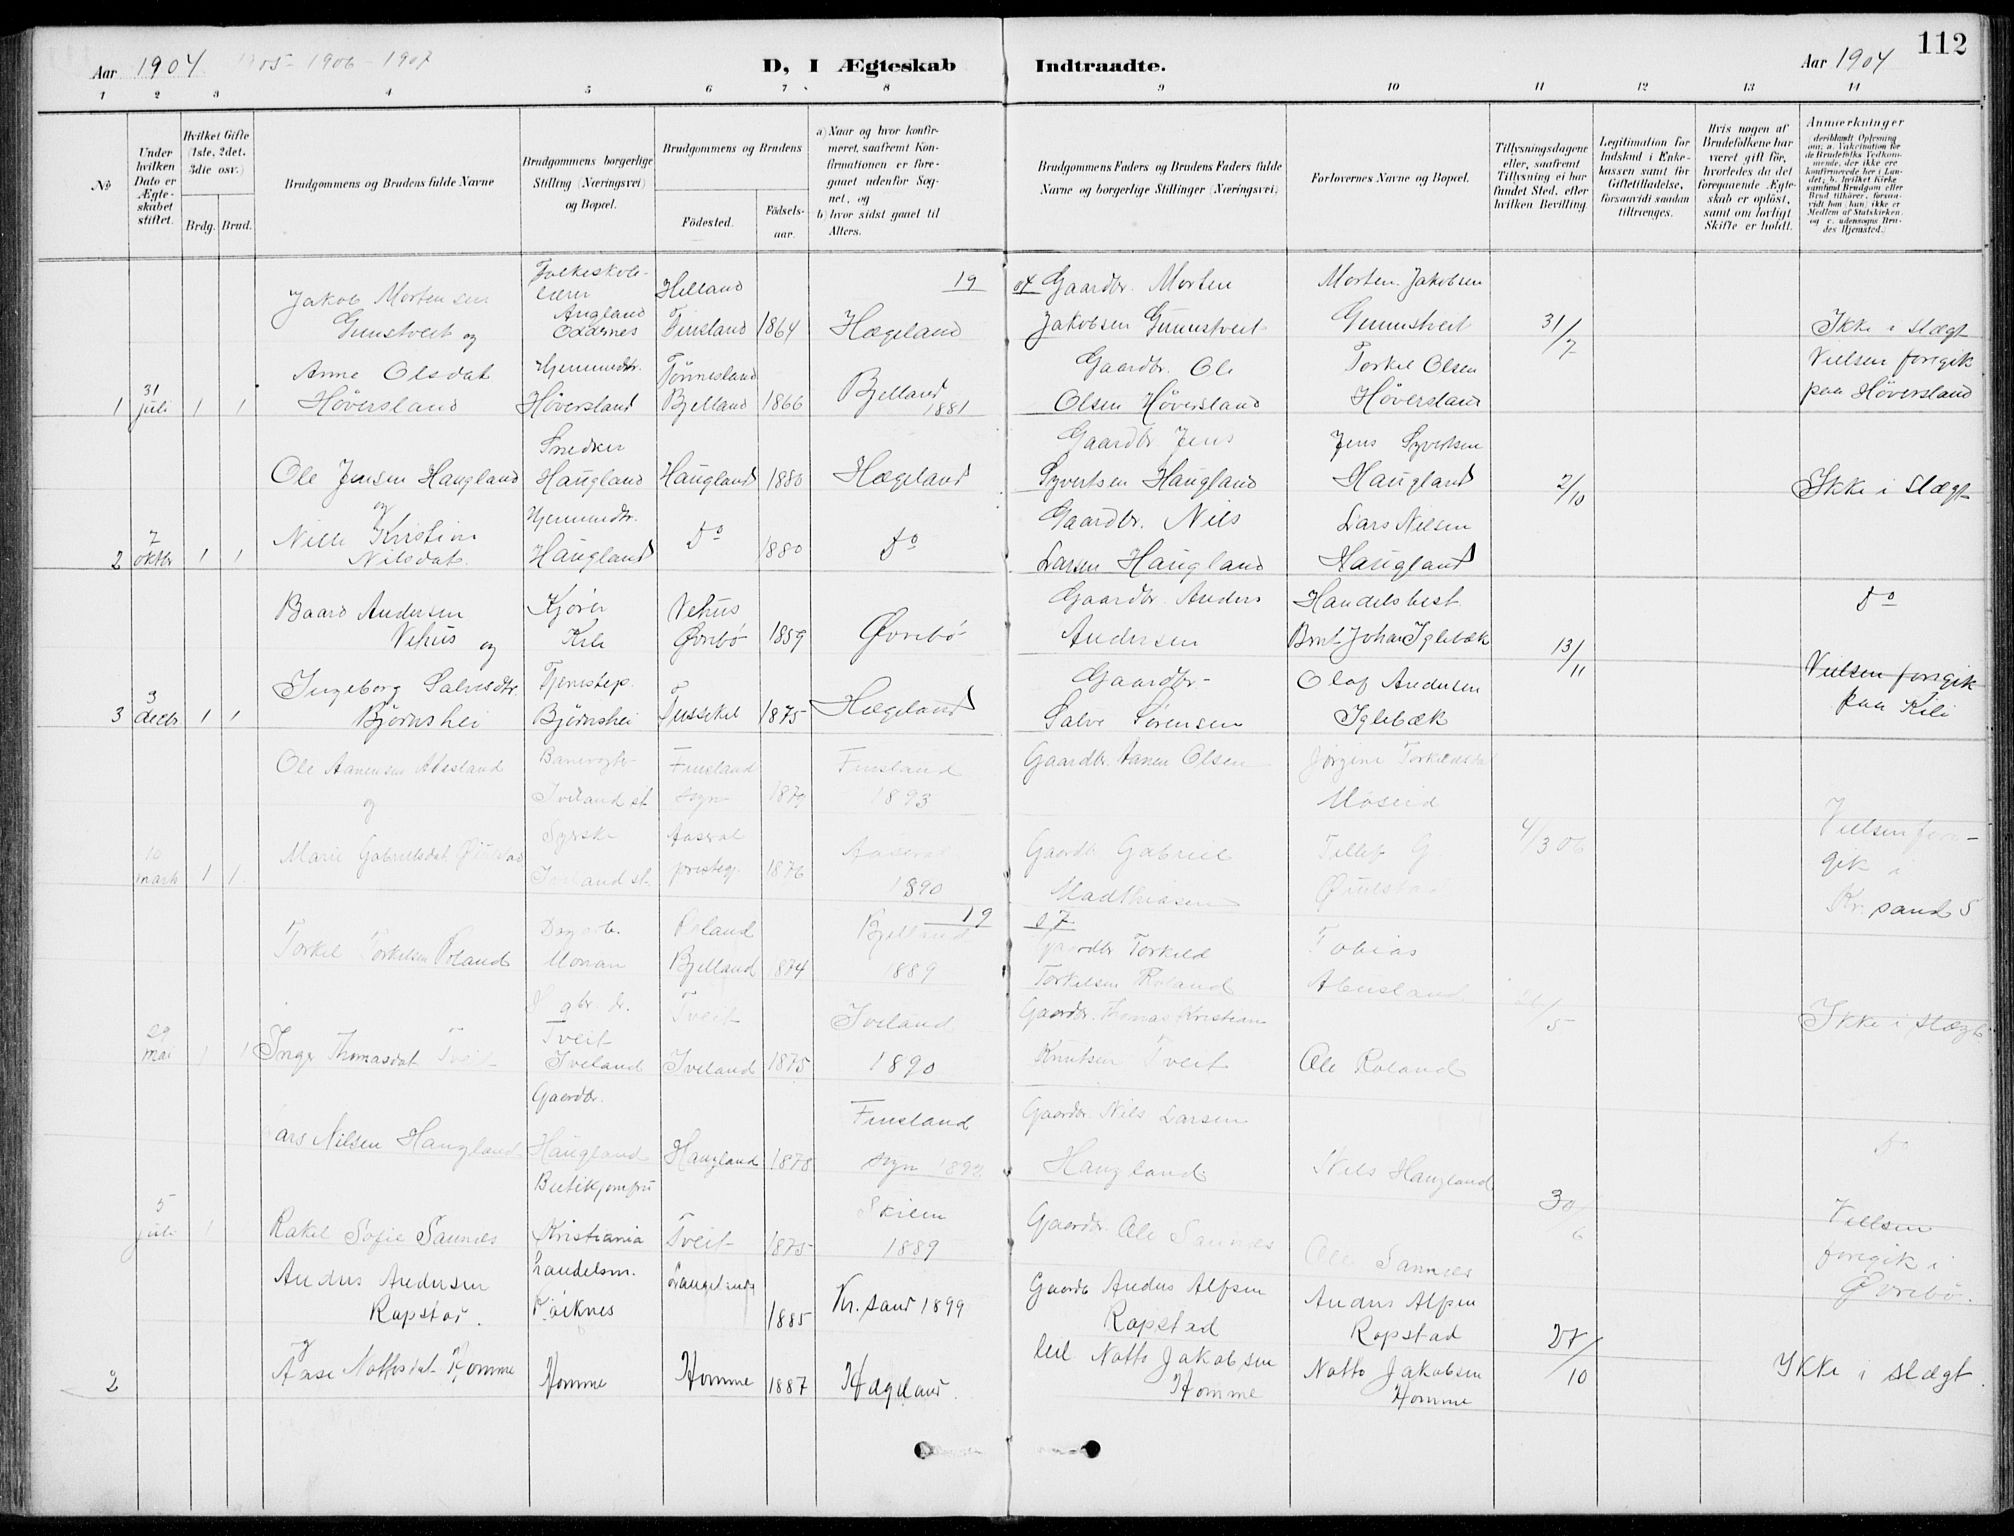 Aar 1904. 1905 - 1906 - 1907
D, I Ægteskab Indtraadte.
Aar 1904
112
1 2 3 4 5 6 7 8 9 10 11 12 13 14
No
Under hvilken Dato er Ægteskabet stiftet.
Hvilket Gifte (1ste, 2det, 3die osv.)
Brdg. Brud.
Brudgommens og Brudens fulde Navne
Brudgommens borgerlige Stilling (Næringsvei) og Bopæl.
Brudgommens og Brudens
Fødested. Fødselsaar.
a) Naar og hvor konfirmeret, saafremt Konfirmationen er foregaaet udenfor Sognet, og
b) hvor sidst gaaet til Alters.
Brudgommens Faders og Brudens Faders fulde Navne og borgerlige Stillinger (Næringsvei)
Forlovernes Navne og Bopæl.
Tillysningsdagene eller, saafremt Tillysning ei har fundet Sted, efter hvilken Bevilling
Legitimation for Indskud i Enkekassen samt for Giftetilladelse, forsaavidt saadan tiltrænges.
Hvis nogen af Brudefolkene har været gift før, hvorledes da det foregaaende Ægteskab er opløst, samt om lovligt Skifte er holdt.
Anmerkninger (deriblandt Oplysning om: a. Vakcination for de Brudefolks Vedkommende, der ikke ere konfirmerede her i Landet; b. hvilket Kirkesamfund Brudgom eller Brud tilhører, forsaavidt han (hun) ikke er Medlem af Statskirken, og c. udensogns Brudes Hjemsted.)
19 04
Jakob Mortensen Gunstveit og
Folkeskolelærer Augland Oddernes
Helland Finsland 1864
Hægeland
Gaardbr. Morten Jakobsen Gunnstveit
Morten Jakobsen Gunnstveit
31/7
Ikke i slægt
1 31 juli 1 1
Anne Olsdat Høversland
Hjemmedtr. Høversland
Tønnesland Bjelland 1866
Bjelland 1881
Gaardbr. Ole Olsen Høversland
Torkel Olsen Høversland
Vielsen foregik paa Høversland
Ole Jensen Haugland og
Snedker Haugland
Haugland 1880
Hægeland
Gaardbr Jens Syvertsen Haugland
Jens Syvertsen Haugland
2/10
Ikke i slægt
2 7 oktbr 1 1
Nille Kristin Nilsdat.
Hjemmedtr. Haugland
Do 1880
Do
Gaardbr. Nils Larsen Haugland
Lars Nilsen Haugland
Baard Andersen Vehus og
Kjører Kile
Vehus Øvrebø 1859
Øvrebø
Gaardbr. Anders Andersen
Handelsbest. Brnt Johan Iglebæk
13/11
Do
3 3 decbr 1 1
Ingeborg Salvesdtr. Bjørnshei
Tjenestep. Bjørnshei
1875
Hægeland
Gaardbr- Salve Sørensen
Olaf Andersen Iglebæk
Vielsen foregik paa Kile
Ole Aanensen Abesland og
Banevogter Iveland st.
Finsland sogn 1879
Finsland 1893
Gaardbr. Aanen Olsen
Jørgine Torkildsdat Moseid
4/3 06
10 marts 1 1
Marie Gabrielsdat.
Syerske Iveland st.
Aaseral prestegj. 1876
Aaseral 1890
Gaardbr Gabriel Madthiasen
Tellef G
Vielsen foregik i Kr.sand S
19 07
Torkel Torkelsen Roland
Dagarb. Monan
Roland Bjelland 1874
Bjelland 1889
Gaardbr Torkild Torkelsen Roland
Tobias Abusland
/5
29 mai 1 1
Inger Thomasdat Tveit
gbr. dr. Tveit Iveland
Tveit Iveland 1875
Iveland 1890
Gaardbr. Thomas Kristian Knutsen Tveit
Ole Roland
Ikke i slægt
Lars Nilsen Haugland
Gaardbr. Haugland
Haugland 1878
Finsland sogn 1892
Gaardbr Nils Larsen Haugland
Nils Haugland
30/6
Do
5 juli 1
Rakel Sofie Sannes
Butikjomfru Kristiania
Tveit 1875
Skien 1889
Gaardbr. Ole Sannes
Ole Sannes
Vielsen foregik i Øvrebø.
Anders Andersen Rapstad. og
Handelsm.
1885
Kr.sand 1899
Gaardbr Anders Alfsen Rapstad
Anders Alfsen Rapstad
27/10
2
Aase Nottosdat Homme
Homme
Homme 1887
Hægeland.
Leil. Notto Jakobsen Homme
Notto Jakobsen Homme
Ikke i slægt.